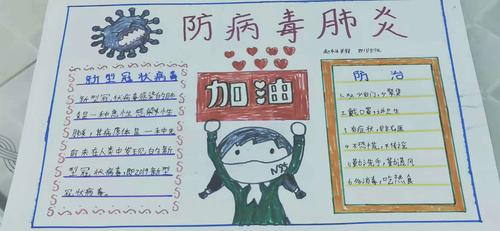 防病毒肺炎
新型冠状病毒
新型冠状病毒感染的肺
炎是一种急性感染性
肺炎,其病原体是一种
前未在人类中发现的新
型冠状病毒,即2019新型
冠状病毒。
加油
防治
1.少出门,少聚集
2.戴口罩,讲卫生
3.有症状,早就医
4.不恐慌,不传谣
5.勤洗手,勤通风
6.多消毒,吃熟食